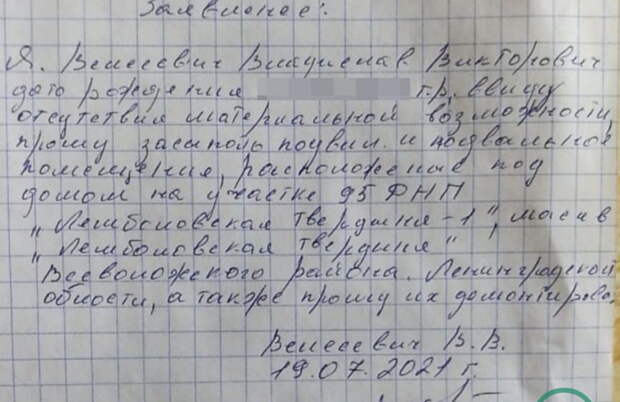 Заявление:
Я. Велесевич Владислав Викторович
дата рождения г.р, ввиду
отсутствия материальной возможности,
прошу засыпь подвил. и подвальное
помещения, расположеные под
домом на участке 95 ФНП
„Лемболовская твердыня-1", масив
„Лемболовская твердыня"
Всеволожского района. Ленинградской
области, а также прошу их демонтирова.
Велесевич В.В.
19.07.2021 г.